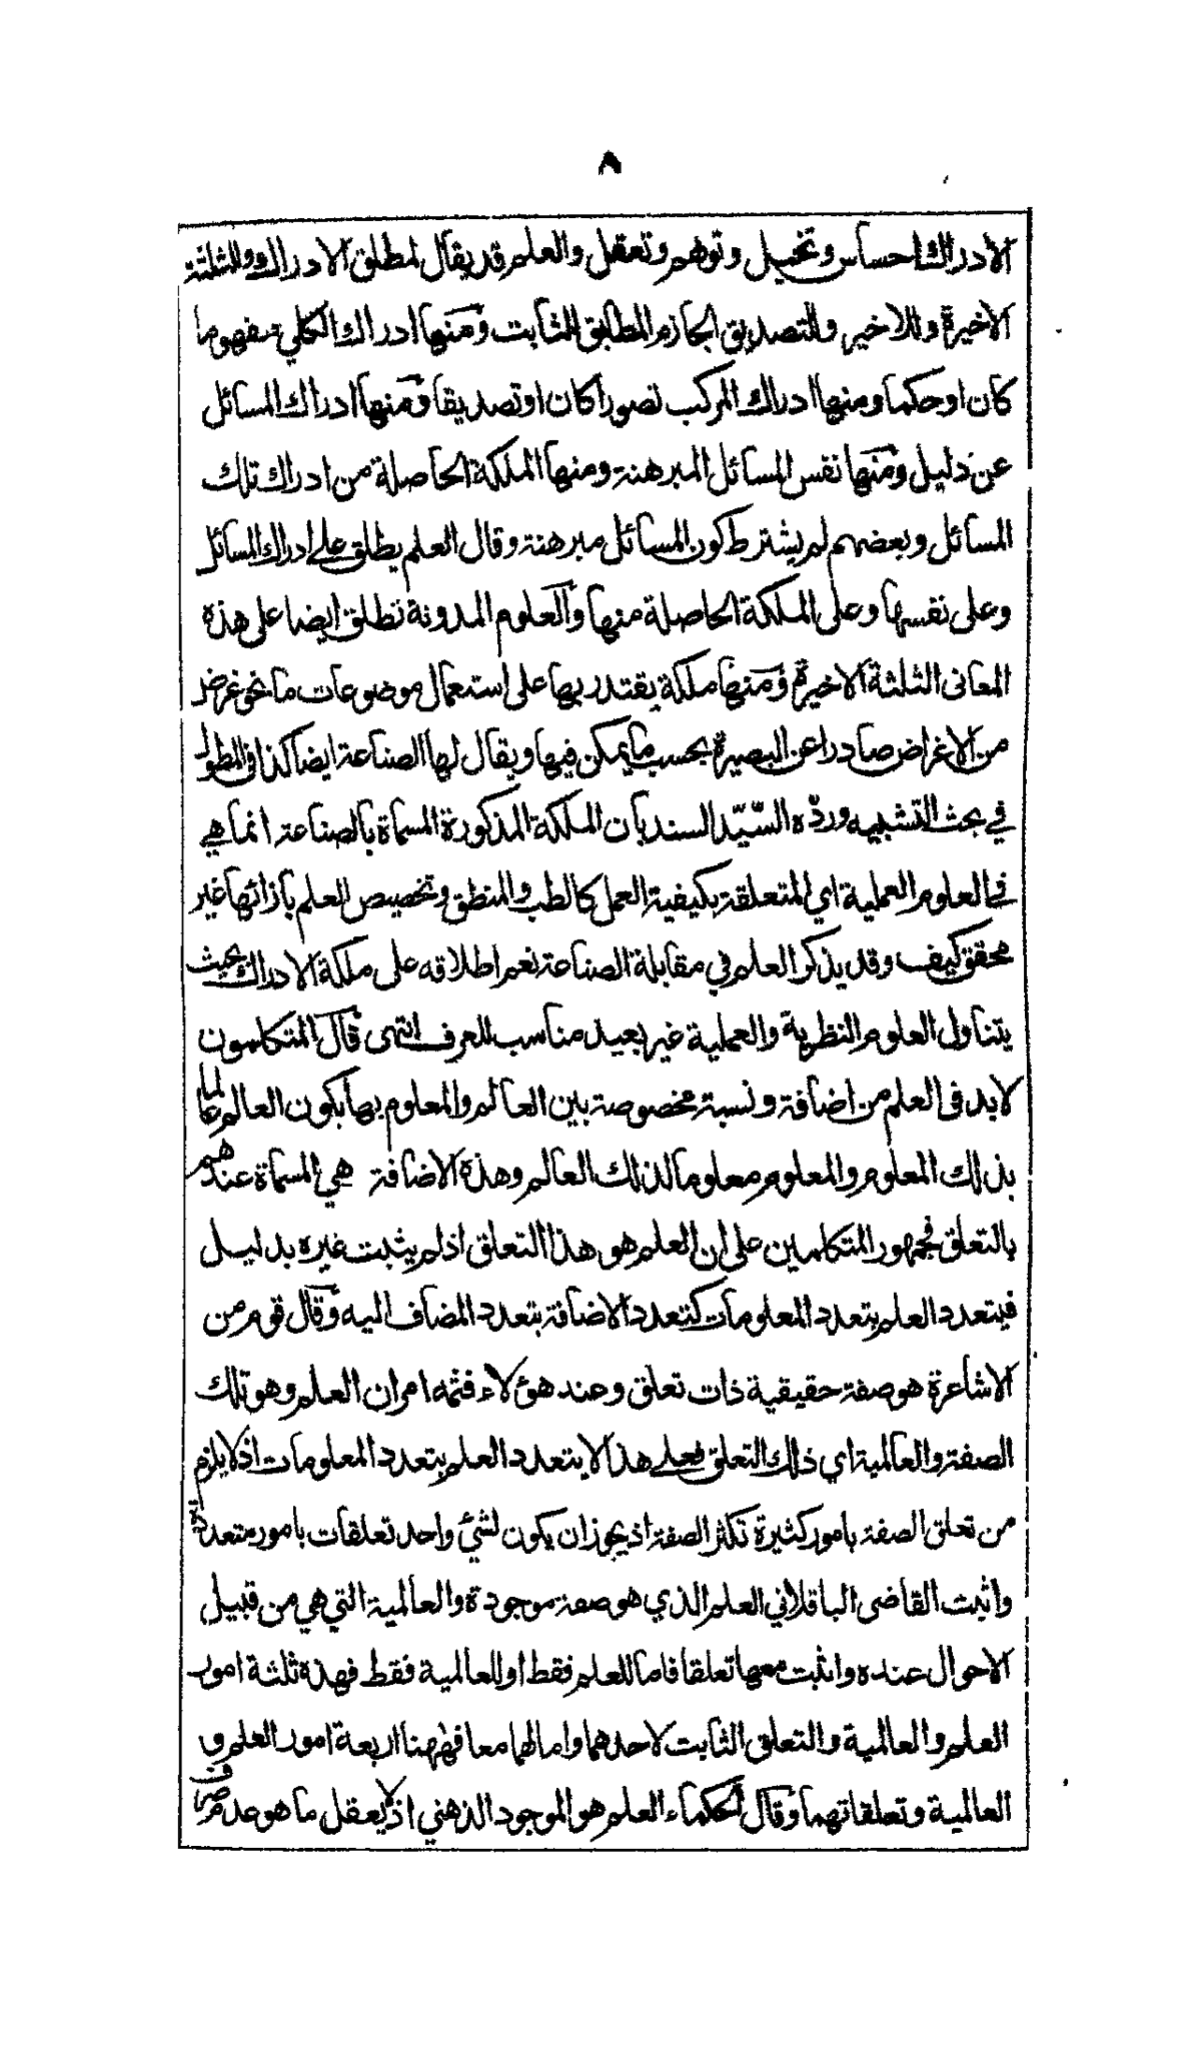 ٨
الادراك احساس وتخييل وتوهم وتعقل والعلم قد يقال لمطلق الادراك وللثلثة
الاخيرة وللاخير وللتصديق الجازم المطابق الثابت ومنها ادراك الكلي مفهوما
كان او حكما ومنها ادراك المركب تصورا كان او تصديقا ومنها ادراك المسائل
عن دليل ومنها نفس المسائل المبرهنة ومنها الملكة الحاصلة من ادراك تلك
المسائل وبعضهم لم يشترط كون المسائل مبرهنة وقال العلم يطلق على ادراك المسائل
وعلى نفسها وعلى الملكة الحاصلة منها والعلوم المدونة تطلق ايضا على هذه
المعانى الثلثة الاخيرة ومنها ملكة يقتدر بها على استعمال موضوعات ما نحو غرض
من الاغراض صادرا عن البصيرة بحسب ما يمكن فيها ويقال لها الصناعة ايضا كذا فى المطول
في بحث التشبيه وردّه السّيّد السند بان الملكة المذكورة المسماة بالصناعة انما هي
فى العلوم العملية اي المتعلقة بكيفية العمل كالطب والمنطق وتخصيص العلم بازائها غير
محقق كيف وقد يذكر العلم في مقابلة الصناعة نعم اطلاقه على ملكة الادراك بحيث
يتناول العلوم النظرية والعملية غير بعيد مناسب للعرف انتهى قال المتكلمون
لا بد فى العلم من اضافة ونسبة مخصوصة بين العالم والمعلوم بها يكون العالم عالما
بذلك المعلوم والمعلوم معلوما لذلك العالم وهذه الاضافة هي المسماة عندهم
بالتعلق فجمهور المتكلمين على ان العلم هو هذا التعلق اذ لم يثبت غيره بدليل
فيتعدد العلم بتعدد المعلومات كتعدد الاضافة بتعدد المضاف اليه وقال قوم من
الاشاعرة هو صفة حقيقية ذات تعلق وعند هؤلاء فثمه امران العلم وهو تلك
الصفة والعالمية اي ذلك التعلق فعلى هذا لا يتعدد العلم بتعدد المعلومات اذ لا يلزم
من تعلق الصفة بامور كثيرة تكثر الصفة اذ يجوز ان يكون لشئ واحد تعلقات بامور متعددة
واثبت القاضى الباقلاني العلم الذي هو صفة موجودة والعالمية التي هي من قبيل
الاحوال عنده واثبت معها تعلقا فاما للعلم فقط او للعالمية فقط فهذه ثلثة امور
العلم والعالمية والتعلق الثابت لاحدهما واما لهما معا فههنا اربعة امور العلم و
العالمية وتعلقاتهما وقال الحكماء العلم هو الموجود الذهني اذ لا يعقل ما هو عدم صرف